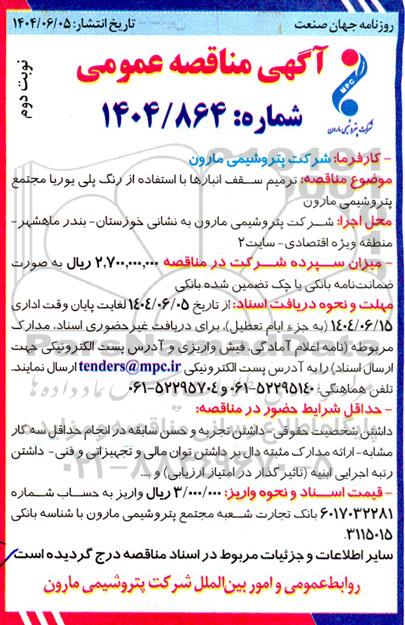 روزنامه جهان صنعت
تاریخ انتشار: ۱۴۰۴/۰۶/۰۵
نوبت دوم
آگهی مناقصه عمومی
شماره: ۱۴۰۴/۸۶۴
MPC
شرکت پتروشیمی مارون
- کارفرما: شرکت پتروشیمی مارون
موضوع مناقصه: ترمیم سقف انبارها با استفاده از رنگ پلی یوریا مجتمع
پتروشیمی مارون
محل اجرا: شرکت پتروشیمی مارون به نشانی خوزستان- بندر ماهشهر-
منطقه ویژه اقتصادی - سایت۲
- میزان سپرده شرکت در مناقصه ۲,۷۰۰,۰۰۰,۰۰۰ ریال به صورت
ضمانت‌نامه بانکی یا چک تضمین شده بانکی
مهلت و نحوه دریافت اسناد: از تاریخ ۱۴۰۴/۰۶/۰۵ لغایت پایان وقت اداری
۱۴۰۴/۰۶/۱۵ (به جزء ایام تعطیل)، برای دریافت غیرحضوری اسناد، مدارک
مربوطه (نامه اعلام آمادگی، فیش واریزی و آدرس پست الکترونیکی جهت
ارسال اسناد) را به آدرس پست الکترونیکی tenders@mpc.ir ارسال نمایند.
تلفن هماهنگی: ۰۶۱-۵۲۲۹۵۱۴۰ و ۰۶۱-۵۲۲۹۵۷۰۴
- حداقل شرایط حضور در مناقصه:
داشتن شخصیت حقوقی- داشتن تجربه و حسن سابقه در انجام حداقل سه کار
مشابه- ارائه مدارک مثبته دال بر داشتن توان مالی و تجهیزاتی و فنی- داشتن
رتبه اجرایی ابنیه (تاثیر گذار در امتیاز ارزیابی) و ....
- قیمت اسناد و نحوه واریز: ۳/۰۰۰/۰۰۰ ریال واریز به حساب شماره
۶۰۱۷۰۳۲۲۸۱ بانک تجارت شعبه مجتمع پتروشیمی مارون با شناسه بانکی
۳۱۱۵۰۱۵.
سایر اطلاعات و جزئیات مربوط در اسناد مناقصه درج گردیده است
روابط‌عمومی و امور بین‌الملل شرکت پتروشیمی مارون